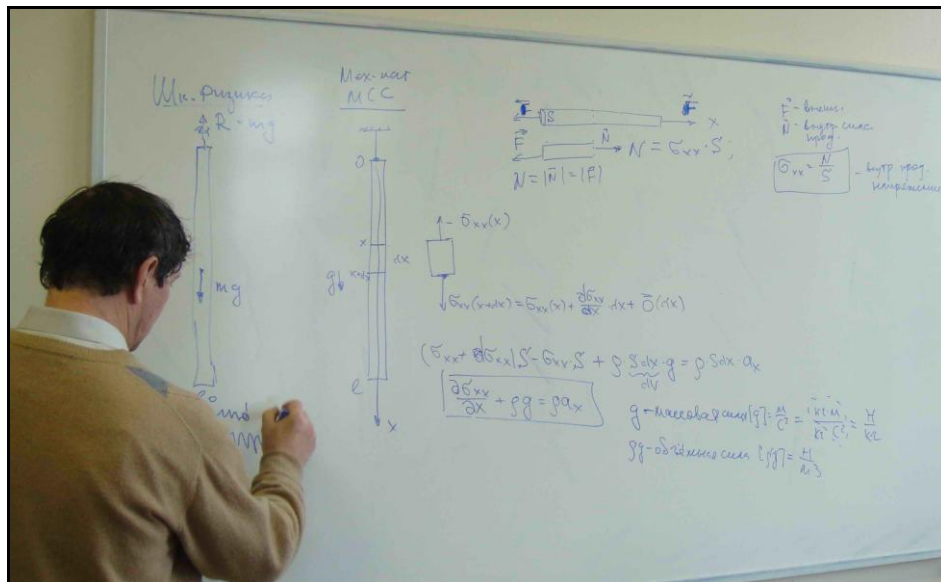 Шк. физика
R = mg
mg
Мех-мат
МСС
O
x
x+dx
dx
g
l
x
F
S
F
x
F
N
N = σxx · S;
N = |N| = |F|
F -
N - внутр
σxx = N/S
- внутр прод. напряжение
- σxx(x)
σxx(x+dx) = σxx(x) + ∂σxx/∂x dx + ō(dx)
(σxx + dσxx)S - σxx S + ρ Sdx · g = ρ Sdx · ax
dV
∂σxx/∂x + ρg = ρax
g - массовая сила [g] = м/с² = кг·м/кг·с² = Н/кг
ρg - объёмная сила [ρg] = Н/м³